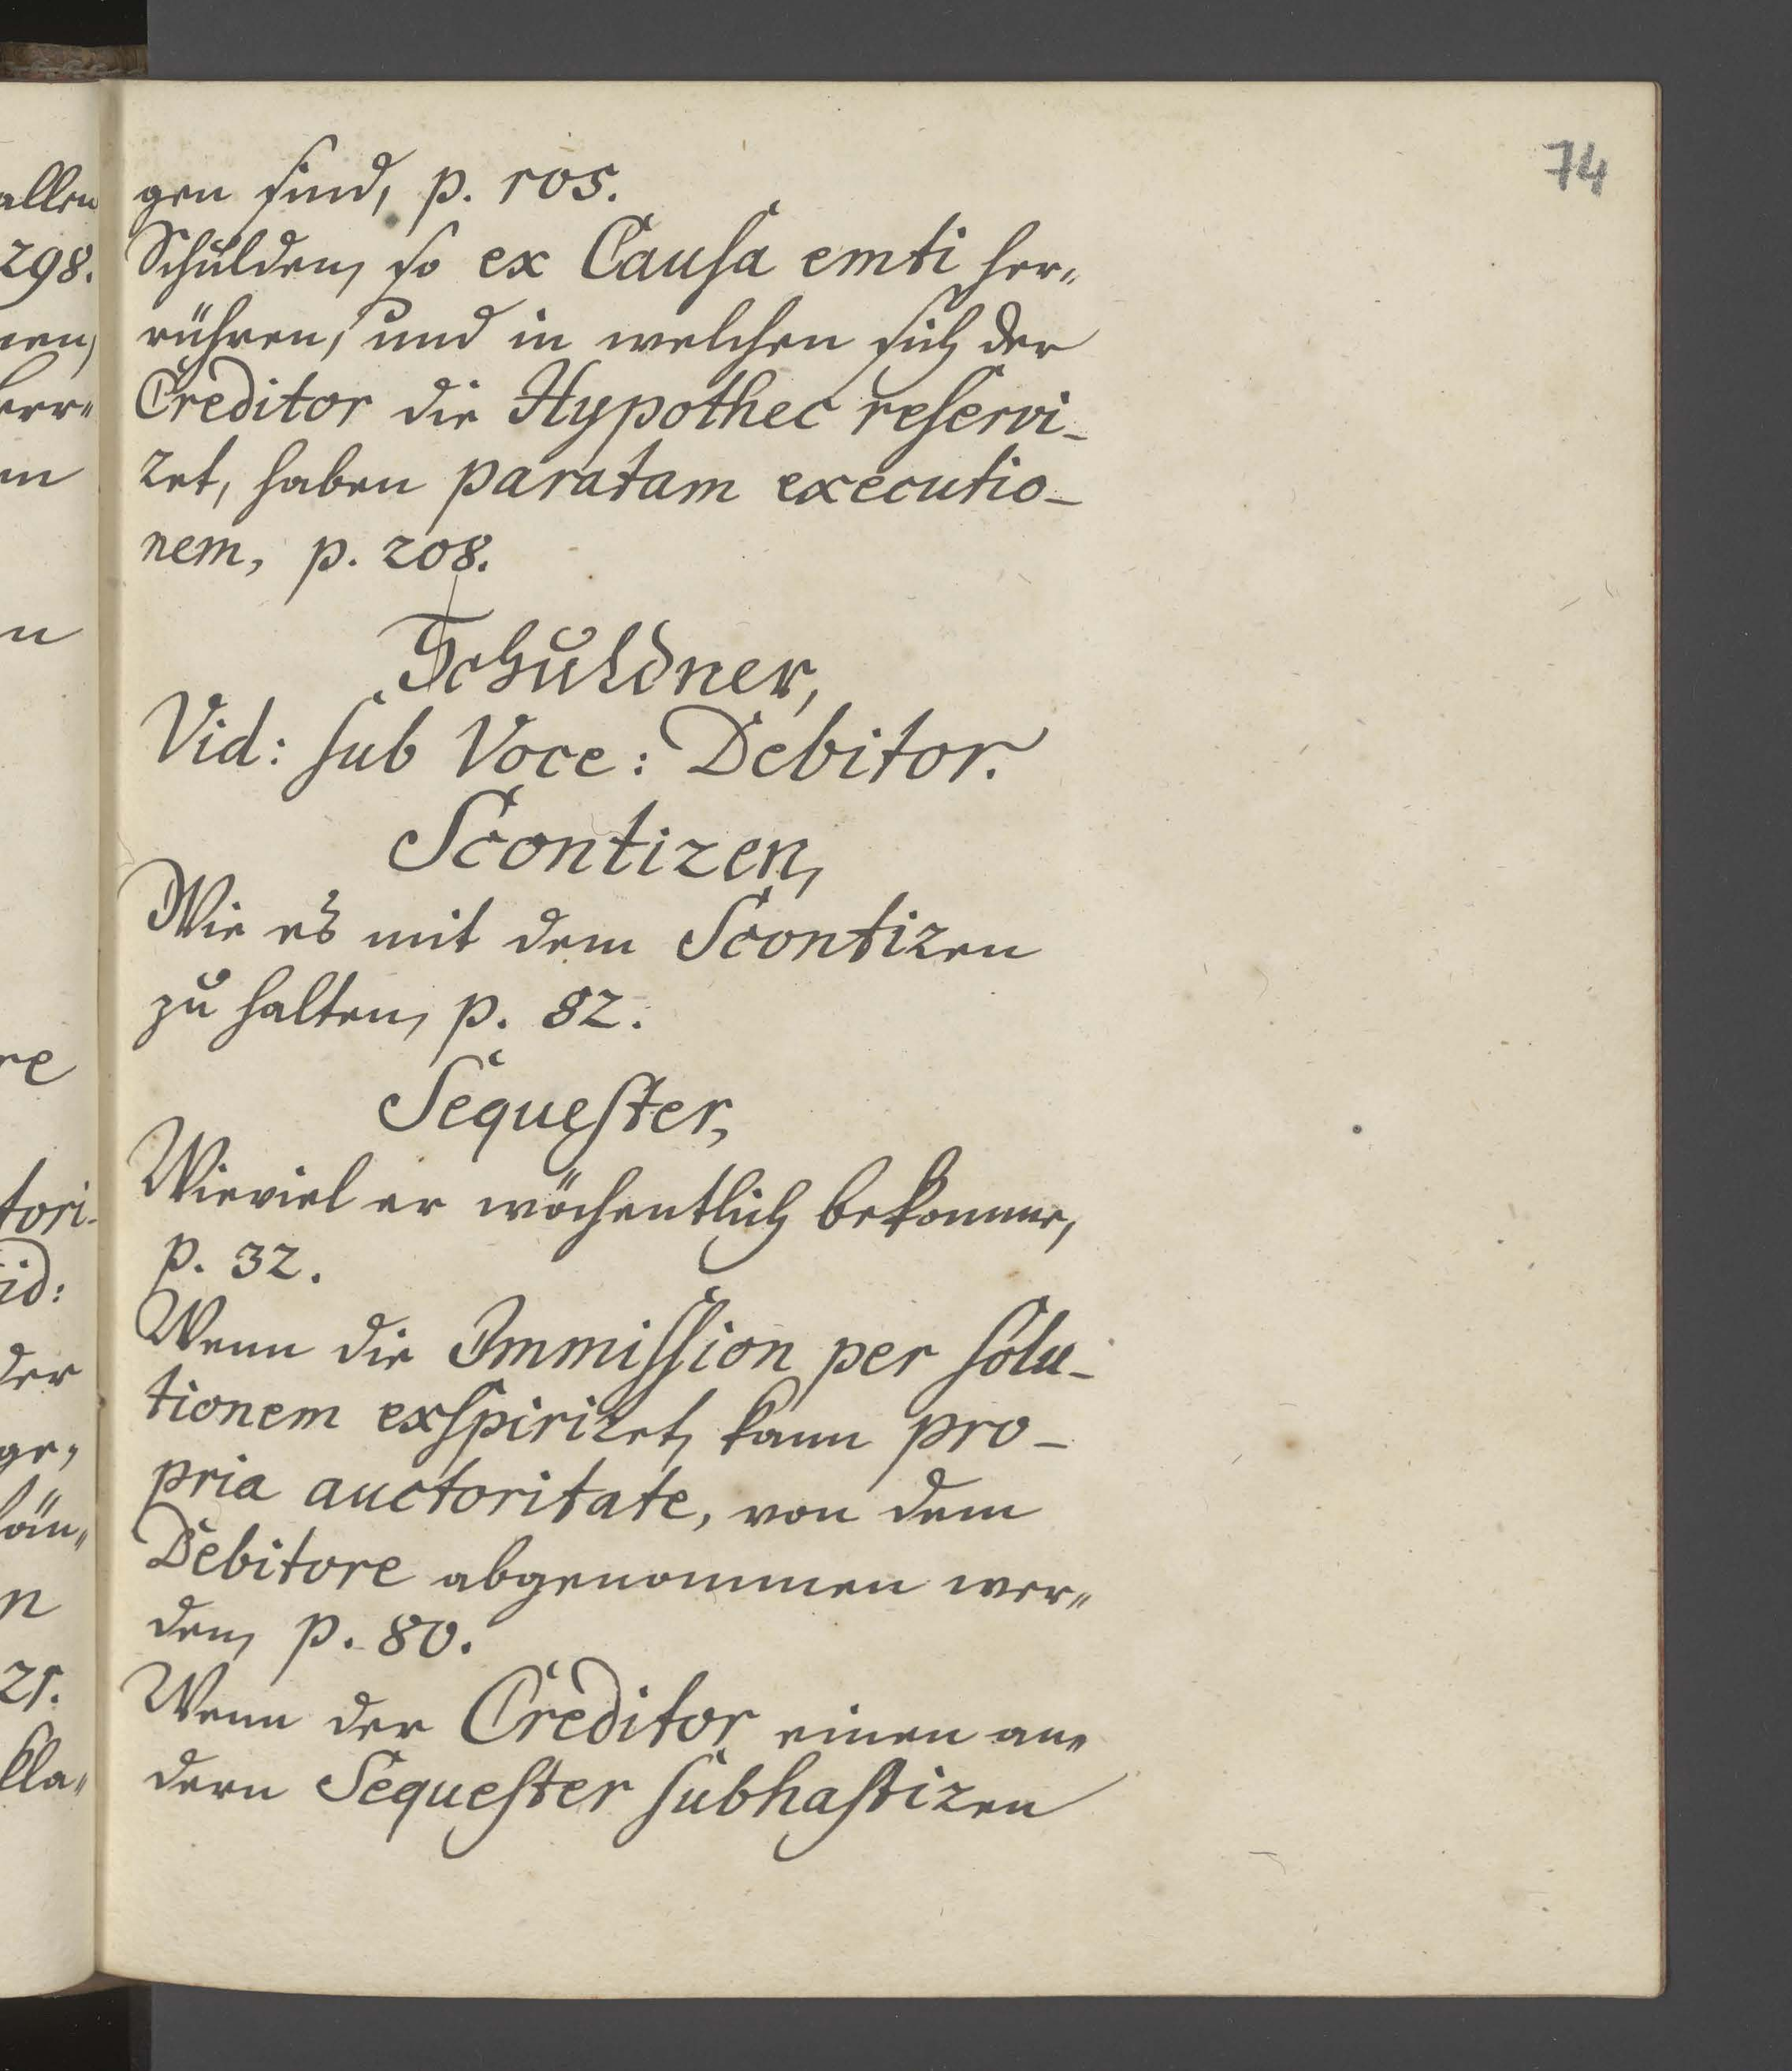 74
gen sind, p. 105.
Schulden, so ex Causa emti her-
rühren, und in welchen sich der
Creditor die Hypothec reservi-
ret, haben paratam executio-
nem, p. 208.
Schuldner,
Vid: sub Voce: Debitor.
Scontiren,
Wie es mit dem Scontiren
zu halten, p. 82.
Sequester,
Wieviel er wöchentlich bekomme,
p. 32.
Wenn die Immission per solu-
tionem exspiriret, kann pro-
pria auctoritate, von dem
Debitore abgenommen wer-
den, p. 80.
Wenn der Creditor einen an-
dern Sequester subhastiren